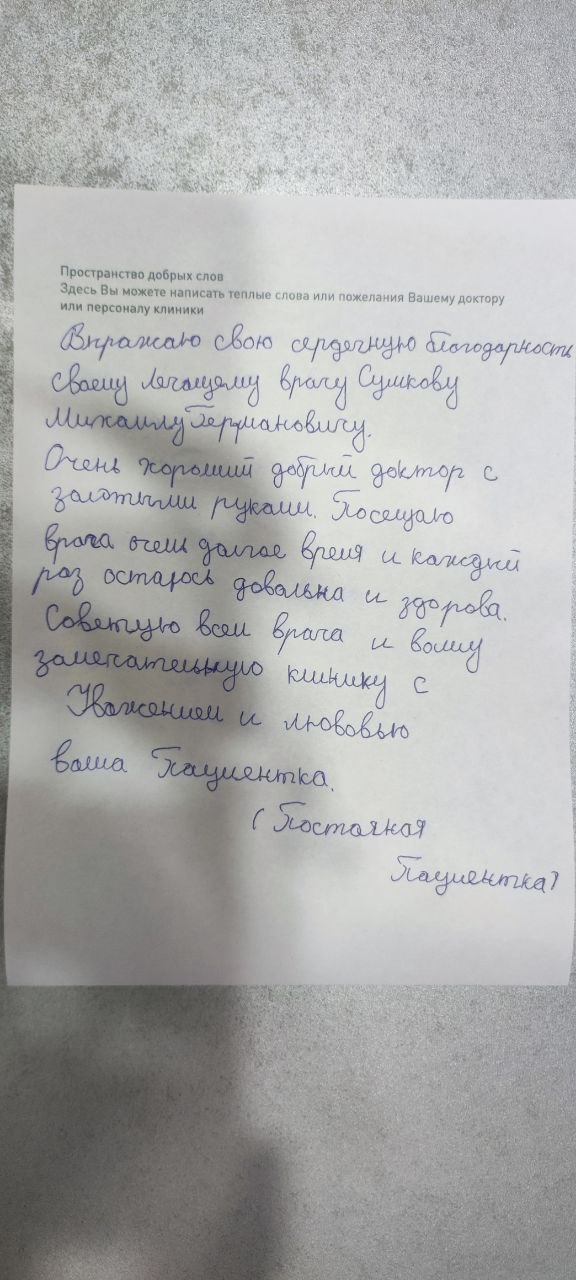 Пространство добрых слов
Здесь Вы можете написать теплые слова или пожелания Вашему доктору
или персоналу клиники
Выражаю свою сердечную благодарность
своему лечащему врачу Сушкову
Михаилу Германовичу.
Очень хороший добрый доктор с
золотыми руками. Посещаю
врача очень долгое время и каждый
раз остаюсь довольна и здорова.
Советую всем врача и вашу
замечательную клинику с
Уважением и любовью
ваша Пациентка.
(Постояная
Пациентка)